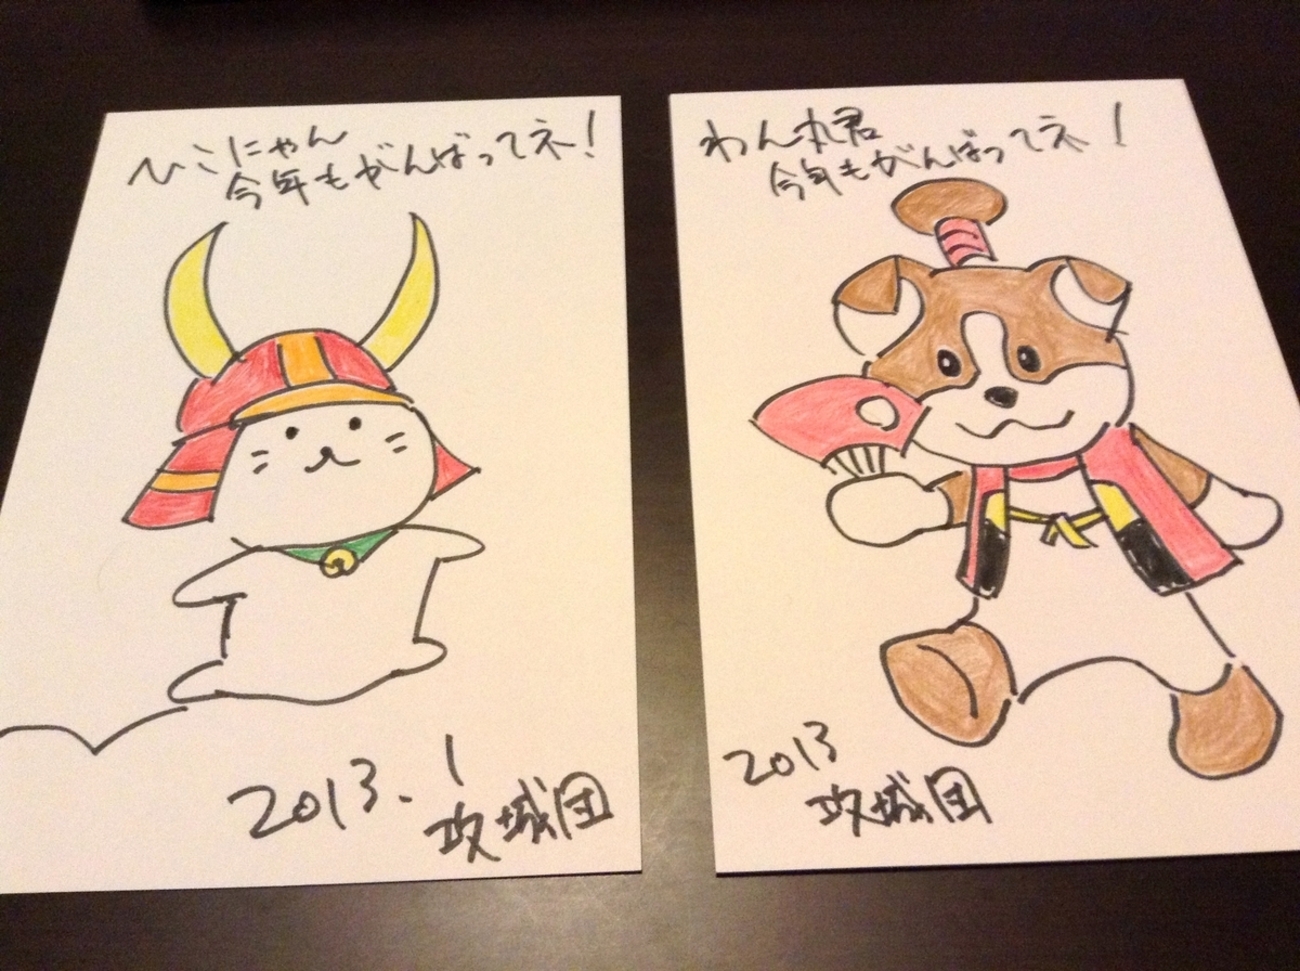 ひこにゃん
今年もがんばってネ!
2013.1
攻城団
わん丸君
今年もがんばってネ!
2013
攻城団